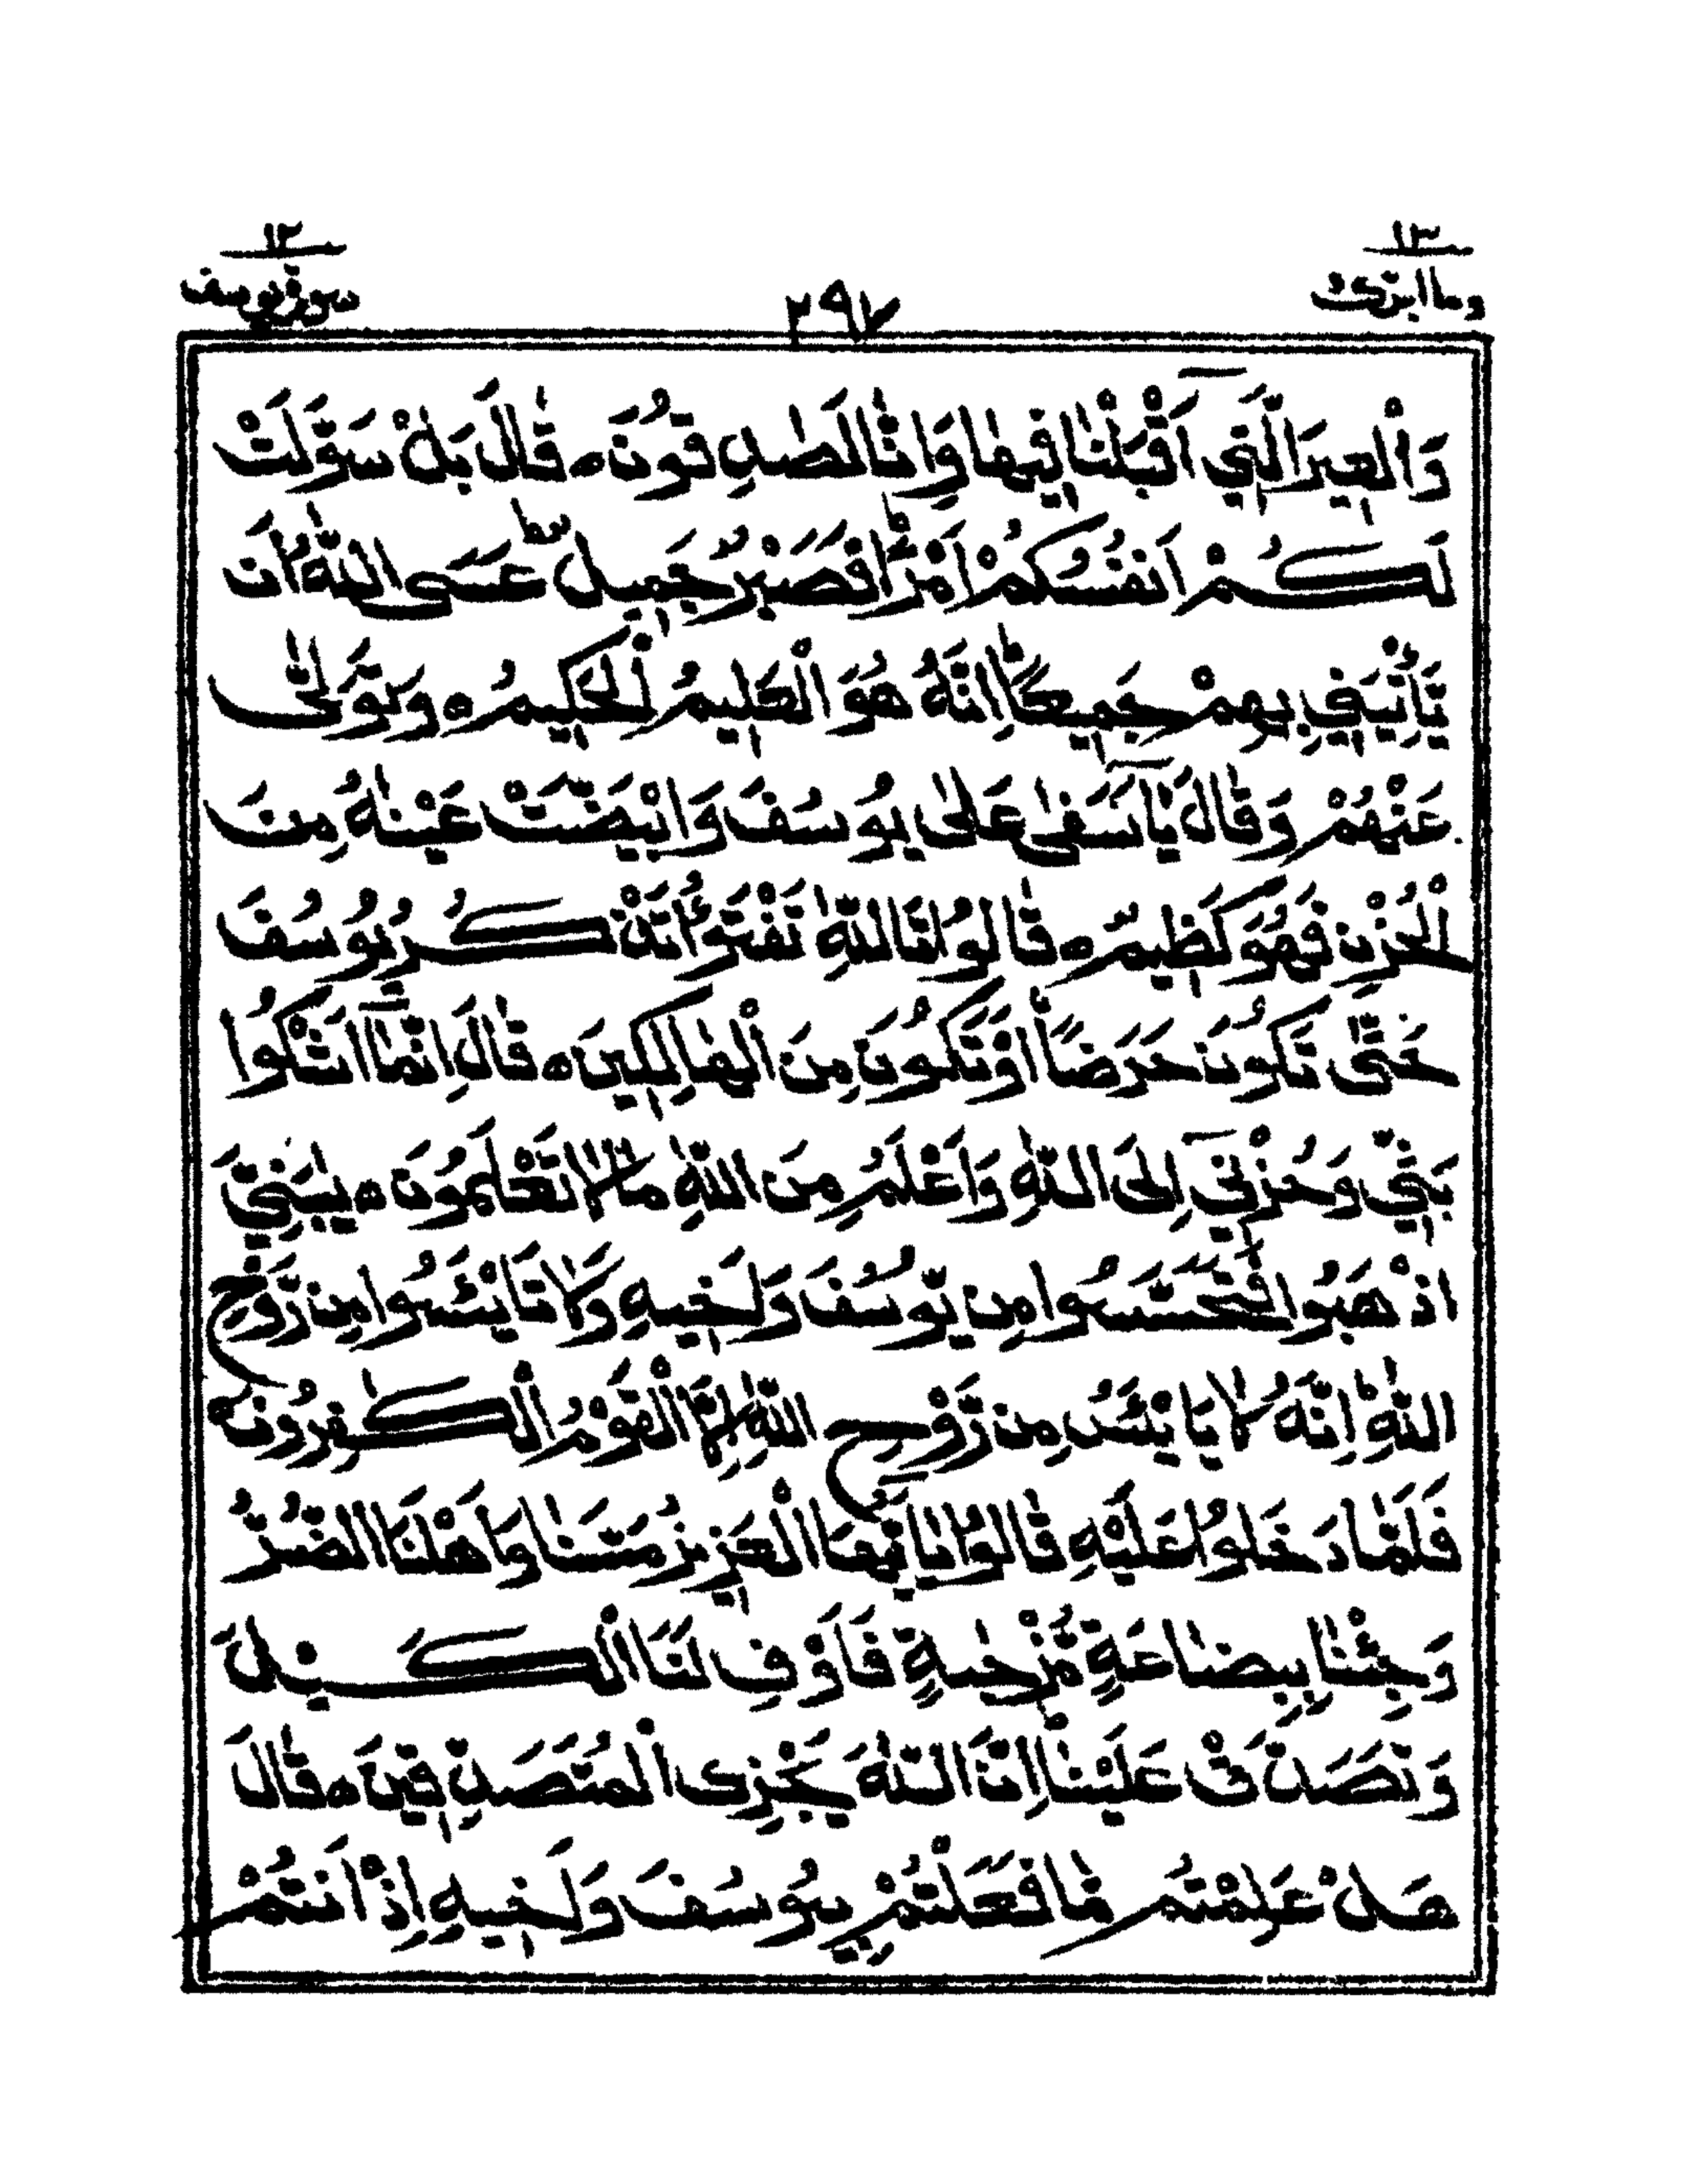 ١٣
وما ابرئ
٢٩٧
١٢
سورة يوسف
وَالْعِيرَ الَّتِيٓ اَقْبَلْنٰا فِيهٰا وَاِنّٰا لَصٰدِقُونَ ه قٰالَ بَلْ سَوَّلَتْ
لَكُمْ اَنفُسُكُمْ اَمْرًاؕ فَصَبْرٌ جَمِيلٌؕ عَسَى اللّٰهُ اَن
يَّاْتِيَنِي بِهِمْ جَمِيعًاؕ اِنَّهُ هُوَ الْعَلِيمُ الْحَكِيمُ ه وَتَوَلّٰى
عَنْهُمْ وَقٰالَ يٰٓاَسَفٰى عَلٰى يُوسُفَ وَابْيَضَّتْ عَيْنٰهُ مِنَ
الْحُزْنِ فَهُوَ كَظِيمٌ ه قٰالُوا تَاللّٰهِ تَفْتَؤُا تَذْكُرُ يُوسُفَ
حَتّٰى تَكُونَ حَرَضًا اَوْ تَكُونَ مِنَ الْهٰالِكِينَ ه قٰالَ اِنَّمٰٓا اَشْكُوا
بَثِّي وَحُزْنِيٓ اِلَى اللّٰهِ وَاَعْلَمُ مِنَ اللّٰهِ مٰا لٰا تَعْلَمُونَ ه يٰبَنِيَّ
اذْهَبُوا فَتَحَسَّسُوا مِن يُّوسُفَ وَاَخِيهِ وَلٰا تَايْئَسُوا مِن رَّوْحِ
اللّٰهِؕ اِنَّهُ لٰا يَايْئَسُ مِن رَّوْحِ اللّٰهِ اِلَّا الْقَوْمُ الْكٰفِرُونَ ه
فَلَمّٰا دَخَلُوا عَلَيْهِ قٰالُوا يٰٓاَيُّهَا الْعَزِيزُ مَسَّنٰا وَاَهْلَنَا الضُّرُّ
وَجِئْنٰا بِبِضٰاعَةٍ مُّزْجٰىةٍ فَاَوْفِ لَنَا الْكَيْلَ
وَتَصَدَّقْ عَلَيْنٰاؕ اِنَّ اللّٰهَ يَجْزِى الْمُتَصَدِّقِينَ ه قٰالَ
هَلْ عَلِمْتُم مّٰا فَعَلْتُمْ بِيُوسُفَ وَاَخِيهِ اِذْ اَنتُمْ